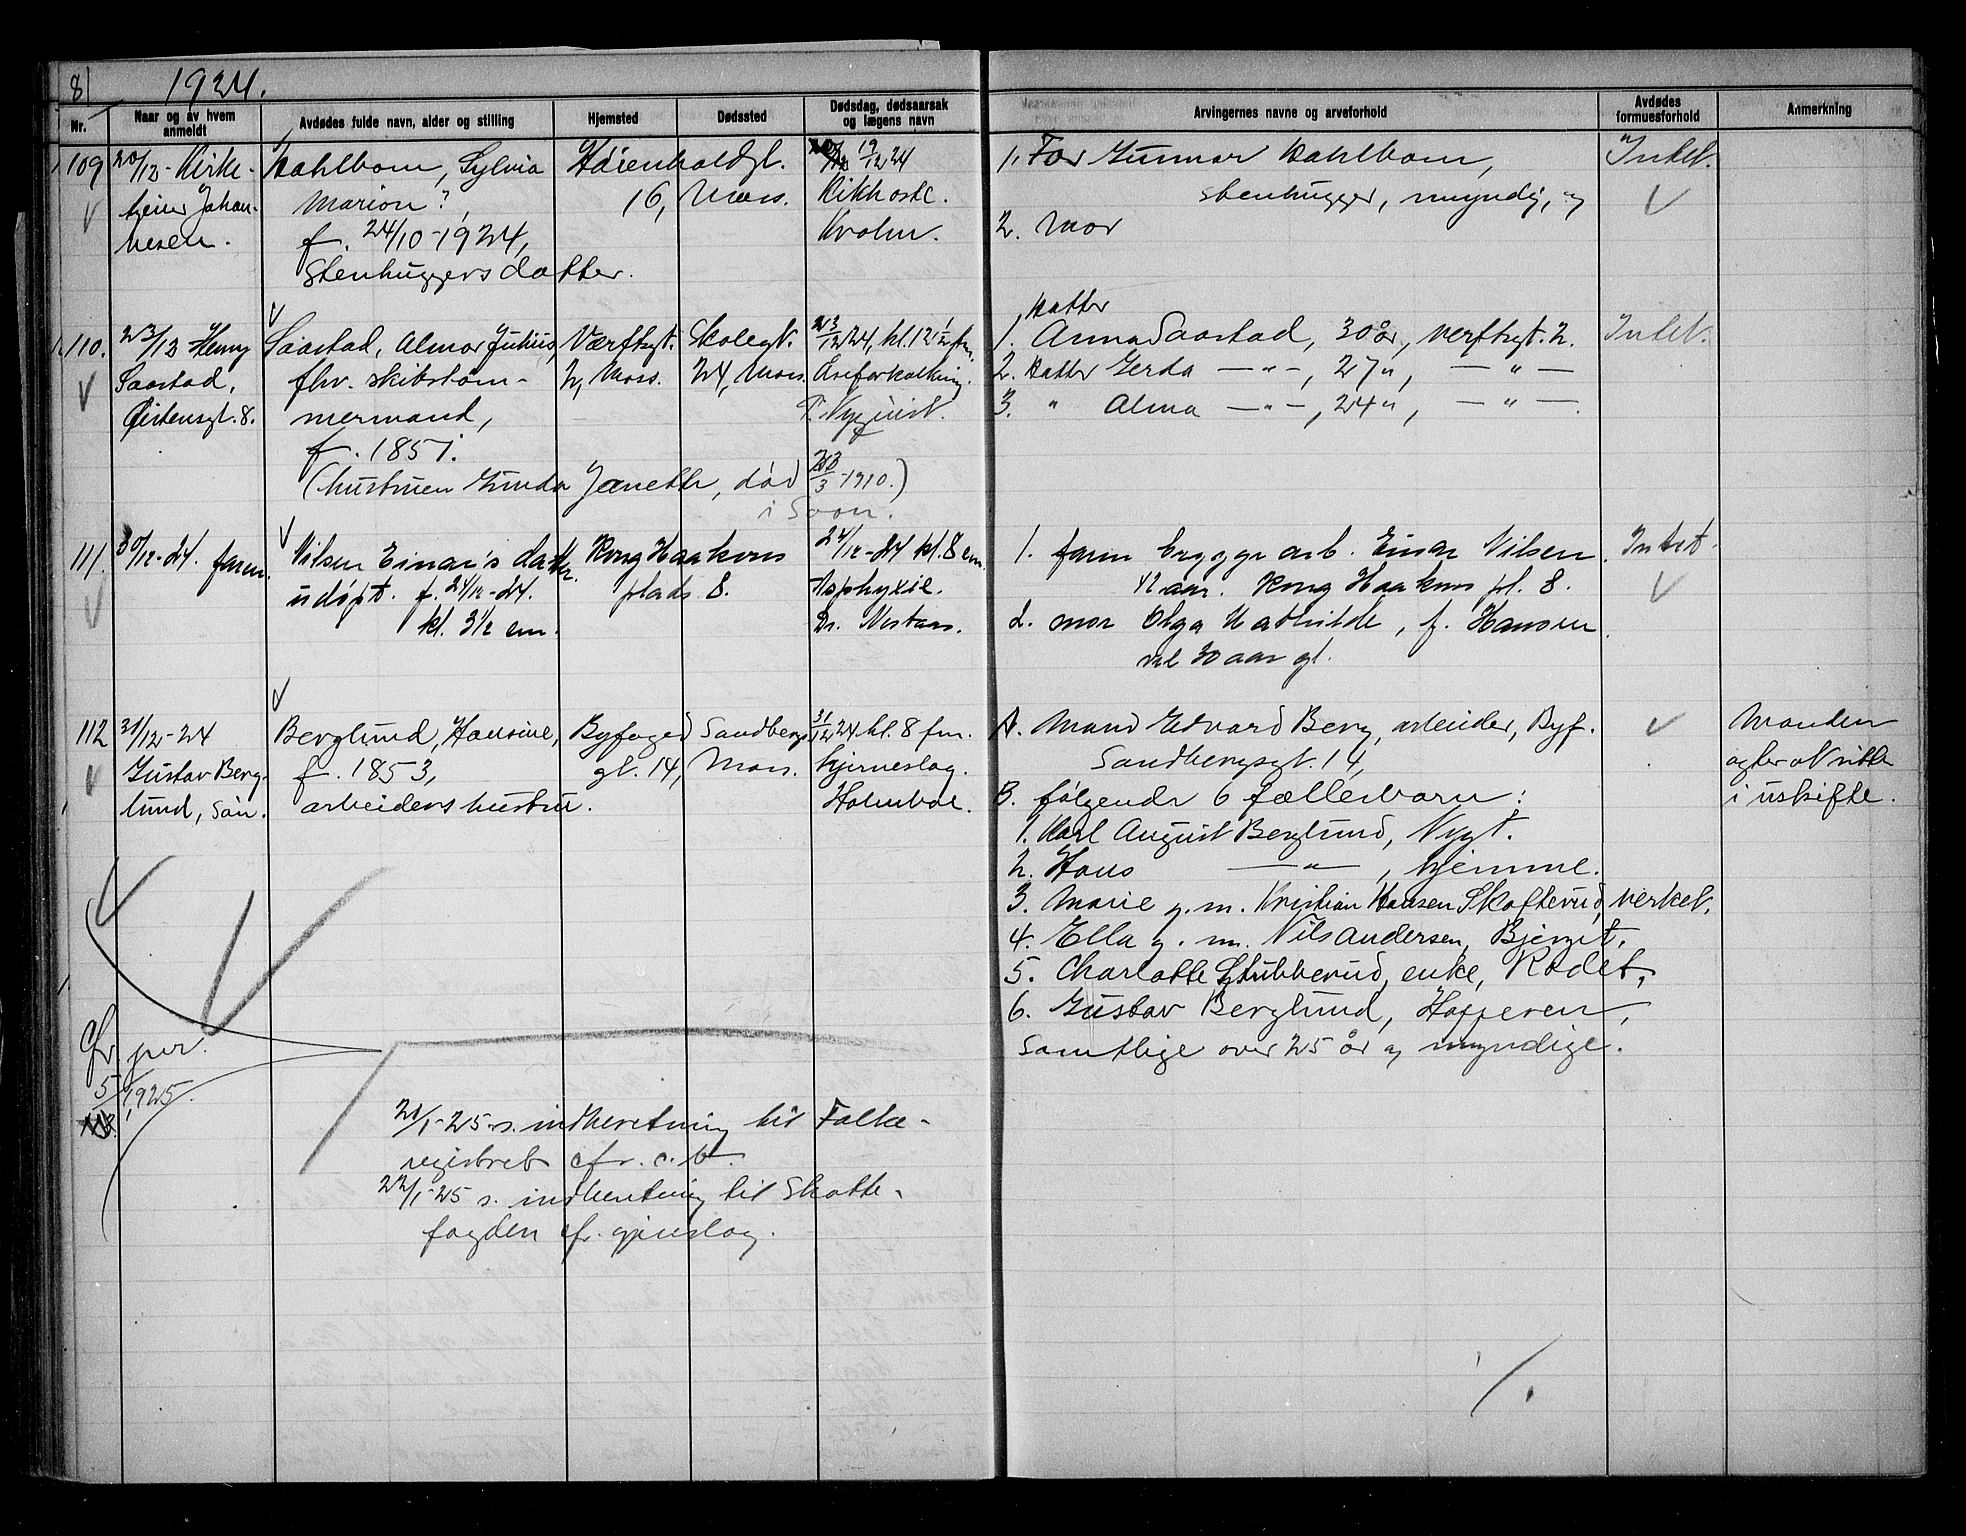 81
1924.
Nr.
Naar og av hvem anmeldt
Avdødes fulde navn, alder og stilling
Hjemsted
Dødssted
Dødsdag, dødsaarsak og lægens navn
Arvingernes navne og arveforhold
Avdødes formuesforhold
Anmerkning
109
20/12 - Kirketjener Johannesen.
Dahlbom, Sylvia
Marion?,
f. 24/10-1924,
Stenhuggersdatter.
16, Moss.
19/12 24
Kikhoste.
1. Far Gunnar Dahlbom,
stenhugger, myndig, og
2. Mor
Intet.
110.
23/12 Henny
Saastad,
gt. 8.
Saastad, Almar Julius,
fhv. skibstøm-
mermand,
f. 1851.
(hustruen Gunda Janette, død 23/3-1910.)
i Soon.
Værftsgt.
2, Moss.
Skolegt.
24, Moss.
23/12 24, kl. 12 1/2 fm.
Åreforkalkning.
1. Datter Anna Saastad, 30 år, Verftsgt. 2.
2. Datter Gerda —"—, 27 ", —"—
3. " Alma —"—, 24 ", —"—.
Intet.
111.
30/12-24. faren.
Nilsen Einar's datter
udøpt. f. 24/12-24.
kl. 3 1/2 em.
Kong Haakons
plads 8.
24/12-24 kl. 8 em.
Asphyxie.
Dr.
1. faren bryggearb. Einar Nilsen
42 aar. Kong Haakons pl. 8.
2. mor Olga Mathilde, f. Hansen
30 aar gl.
Intet.
112
31/12-24
Gustav Berg-
lund, Søn.
Berglund, Hansine,
f. 1853,
arbeiders hustru.
Byfoged Sandbergs
gt. 14, Moss.
31/12 24 kl. 8 fm.
Hjerneslag.
Holmboe.
A. Mand Edvard Berg, arbeider, Byf.
Sandbergsgt. 14,
B. følgende 6 fællesbarn:
1. Karl August Berglund, Nygt.
2. Hans —"—, hjemme.
3. Marie g. m. Kristian Hansen Skofterud, Verket.
4. Ella g. m. Nils Andersen, Bjerget.
5. Charlotte Stubberud, enke, Rødet,
6. Gustav Berglund,
Samtlige over 25 år og myndige.
Manden
agter at sitte
i uskifte.
Cfr. jnr.
5/1925.
21/1-25 s. indberetning til Folke-
registret cfr. c. b.
22/1-25 s. indberetning til Skatte-
fogden cfr.